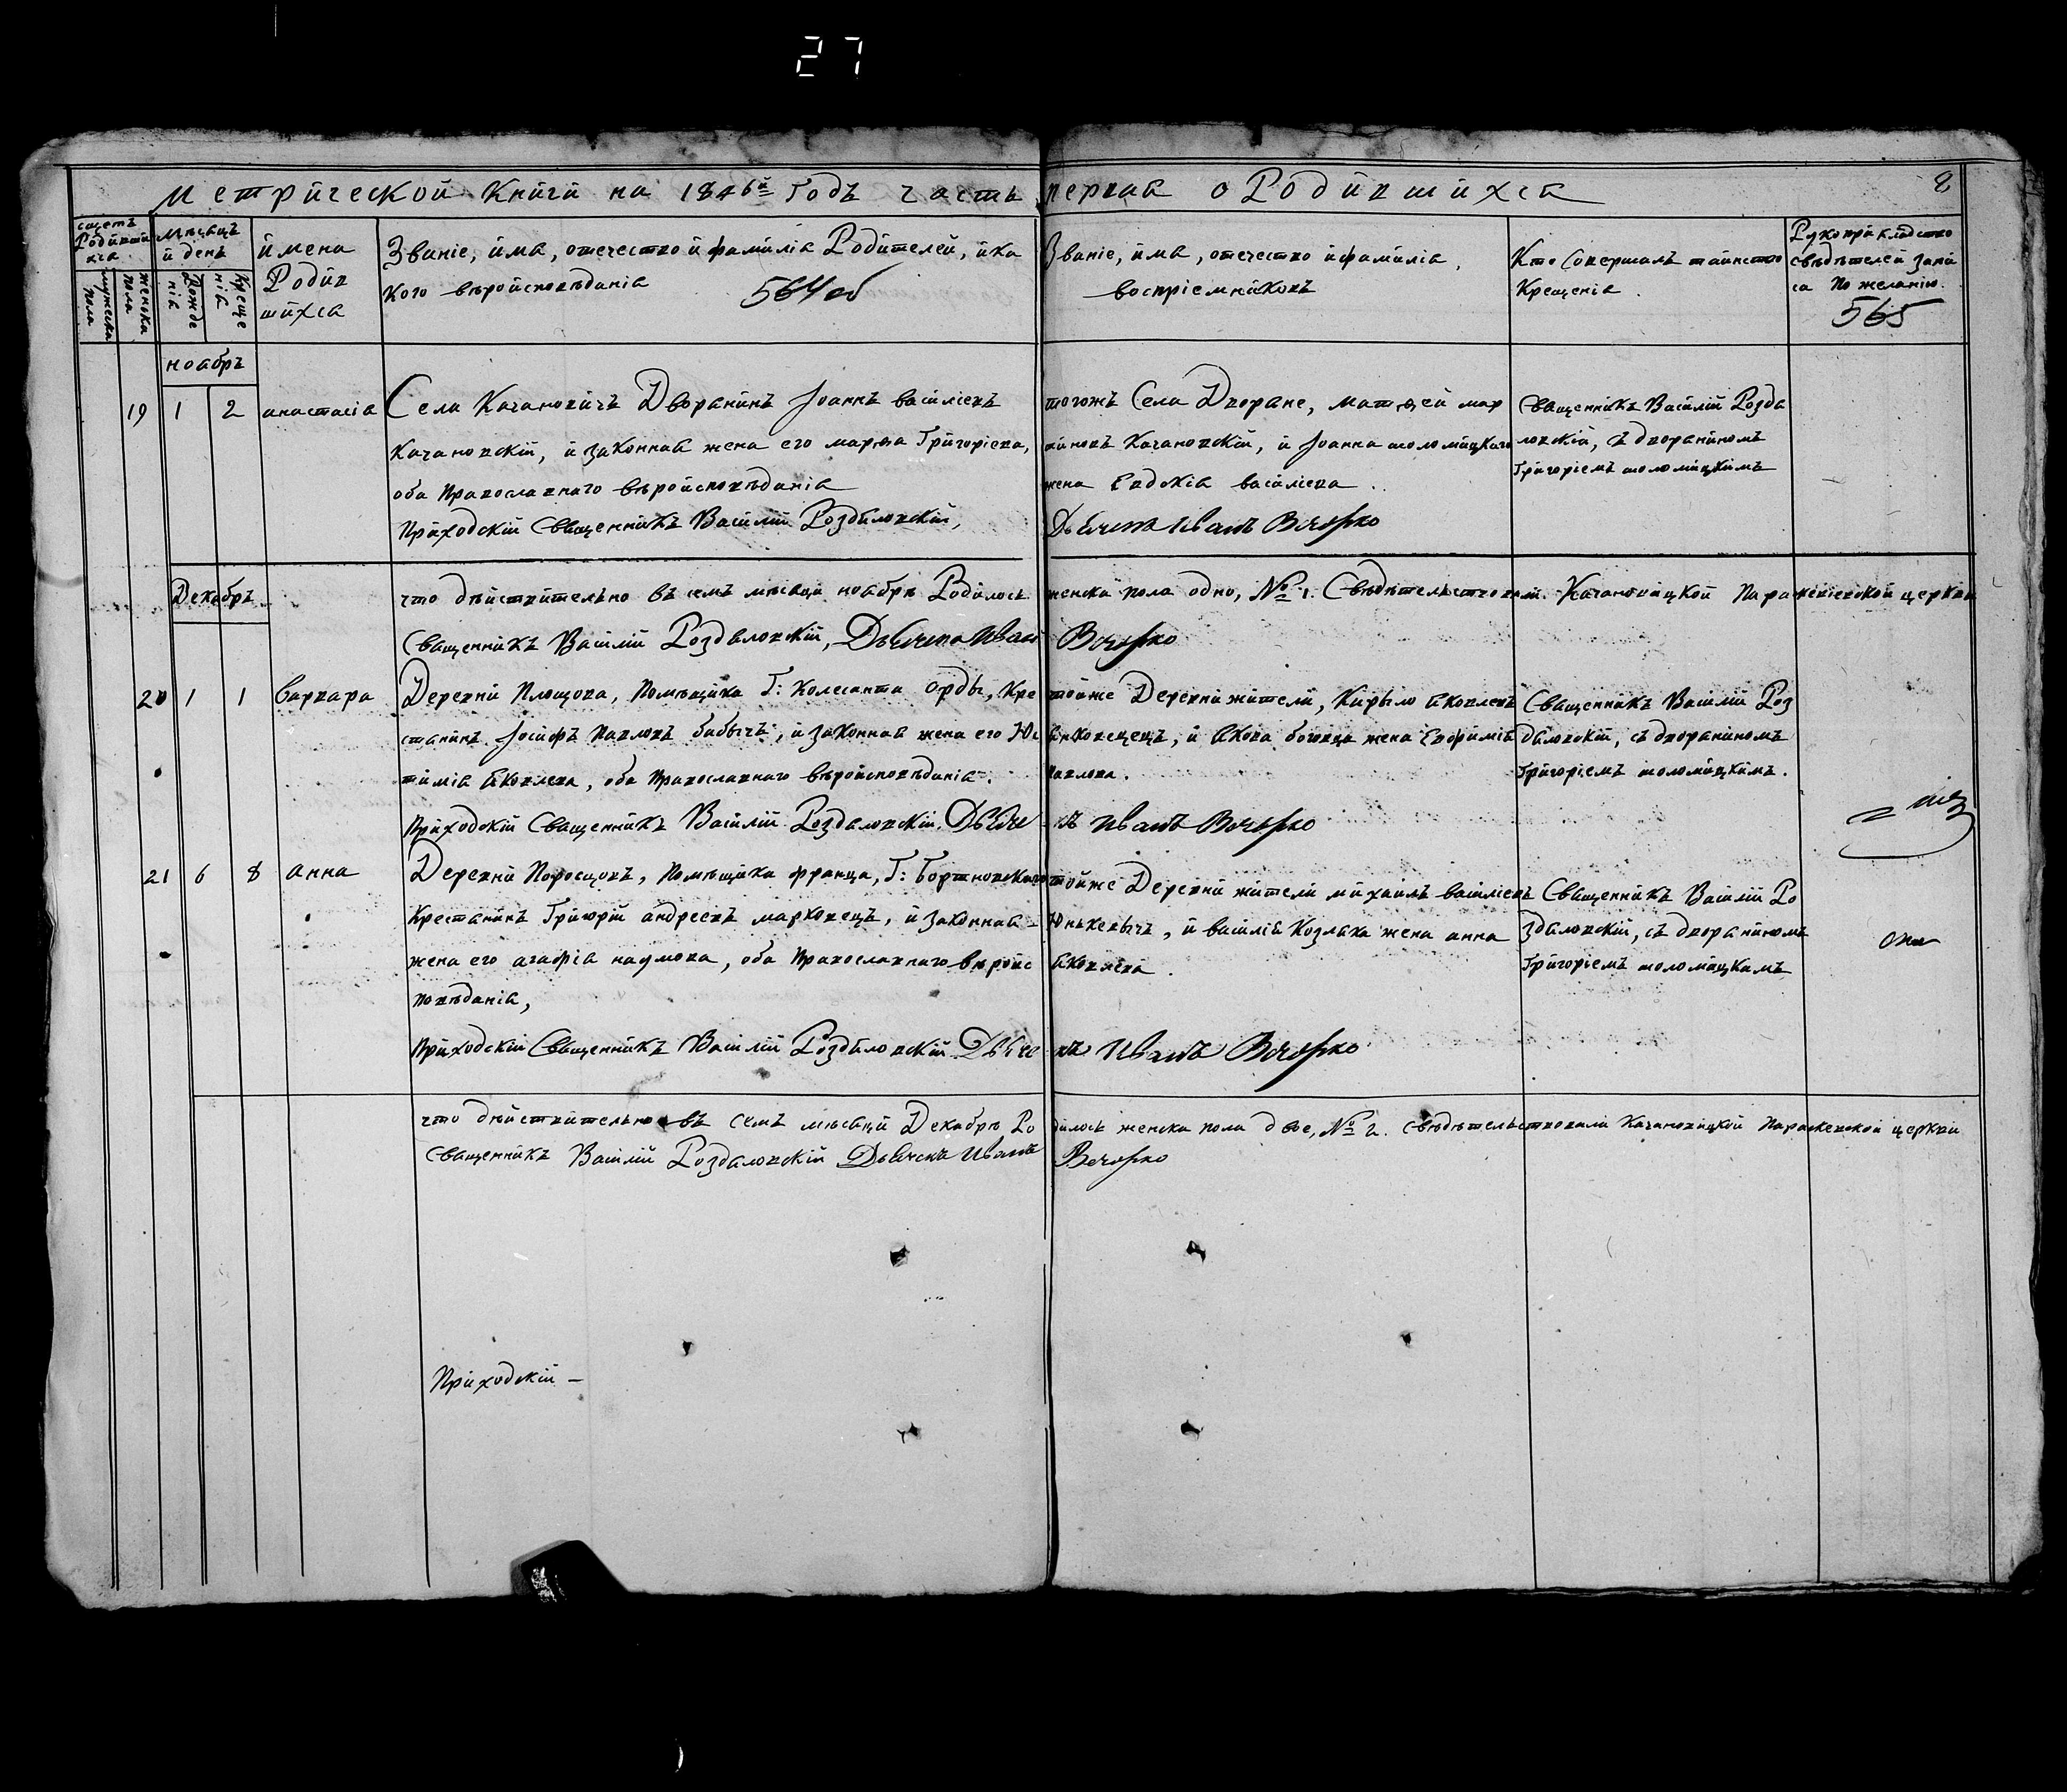 27
Метрической Книги на 1846й годъ часть первая о Родившихся
8
щетъ Родившихся
мѣсяцъ и день
имена Родившихся
мужеска пола
женска пола
Рожденія
Крещенія
Званіе, имя, отечество и фамилія Родителей, и ка
кого вѣроисповѣданія
564 об
Званіе, имя, отечество и фамилія,
воспріемниковъ
Кто Совершалъ таинство
Крещенія
Рукоприкладство
свѣдѣтелей запи
са по желанію.
565
ноабрь
19 1 2 анастасія
Села Качановичъ Дворанинъ Іоаннъ василіевъ
Качановскій, и законная жена его марѳа Григоріева,
оба Православнаго вѣроисповѣданія
Приходскій Священникъ Василій Роздяловскій,
тогожъ Села Дворане, матѳей мар
тиновъ Качановскій, и Іоанна толомицкаго
жена Евдокія василіева.
Дьячекъ Иванъ Вечорко
Священникъ Василій Розда
ловскій, съ дворяниномъ
Григоріемъ толомицкимъ
Декабрь
что дѣйствительно въ семъ мѣсяци ноабрѣ Родилось женска пола одно, № 1. Свѣдѣтельствовали. Качановицкой Параскевіевской церкви
Священникъ Василій Роздяловскій, Дьячекъ Иванъ Вечорко
20 1 1 варвара
Деревни Площова, Помѣщика Г: Колесанта Орды, Кре
станинъ Іосифъ Павловъ бабычъ, и законная жена его Юс
тиміа Яковлева, оба Православнаго вѣроисповѣданія.
Приходскій Священникъ Василій Роздяловскій. Дьяче
тойже Деревни жители, Кирыло Яковлевъ
Янковецецъ, и Якова богоца жена Ефимія
Павлова.
къ Иванъ Вечорко
Священникъ Василій Роз
дяловскій, съ дворяниномъ
Григоріемъ толомицкимъ.
21 6 8 анна
Деревни Поросцовъ, Помѣщика Франца, Г: Бортновскаго
Крестанинъ Григорій андреевъ марковецъ, и законная
жена его агафія наумова, оба Православнаго вѣроис
повѣданія,
Приходскій Священникъ Василій Роздяловскій Дьяче
тойже Деревни жители михаилъ василіевъ
Юнькевычъ, и василія Козлака жена анна
Яковлева.
къ Иванъ Вечорко
Священникъ Василій Ро
здяловскій, съ дворяниномъ
Григоріемъ толомицкимъ
что дѣйствительно въ семъ мѣсяци Декабрѣ Ро дилось женска пола двое, № 2. Свѣдѣтельствовали Качановицкой Параскевской церкви
Священникъ Василій Роздяловскій Дьячекъ Иванъ Вечорко
Приходскій –